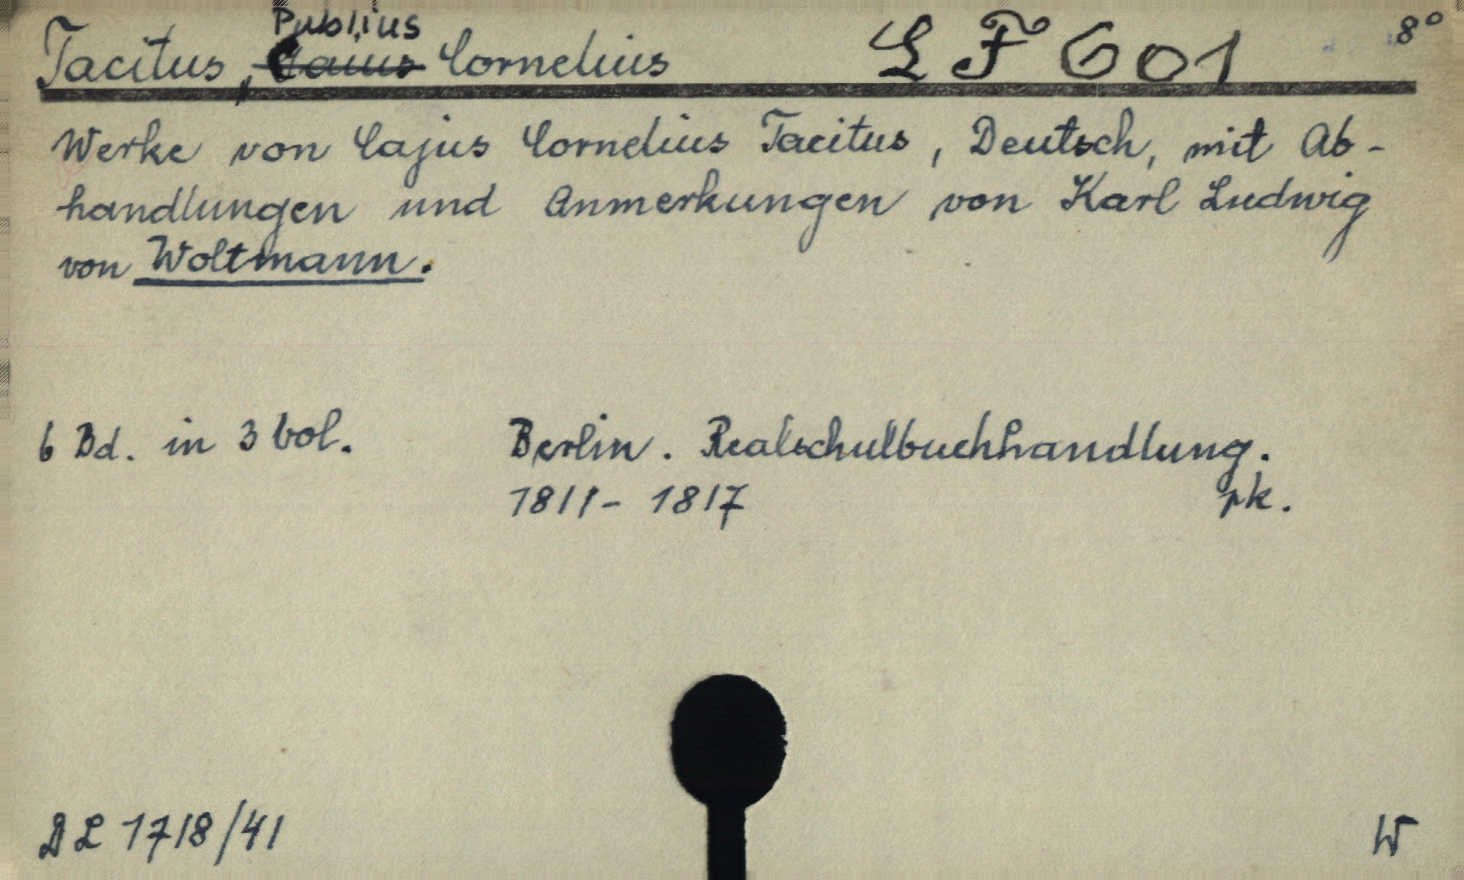 Publius
Tacitus, Caius Cornelius LF 601 8°
Werke von Cajus Cornelius Tacitus, Deutsch, mit Ab-
handlungen und Anmerkungen von Karl Ludwig
von Woltmann.
6 Bd. in 3 vol. Berlin. Realschulbuchhandlung.
1811-1817 rk.
DL 1718/41 W